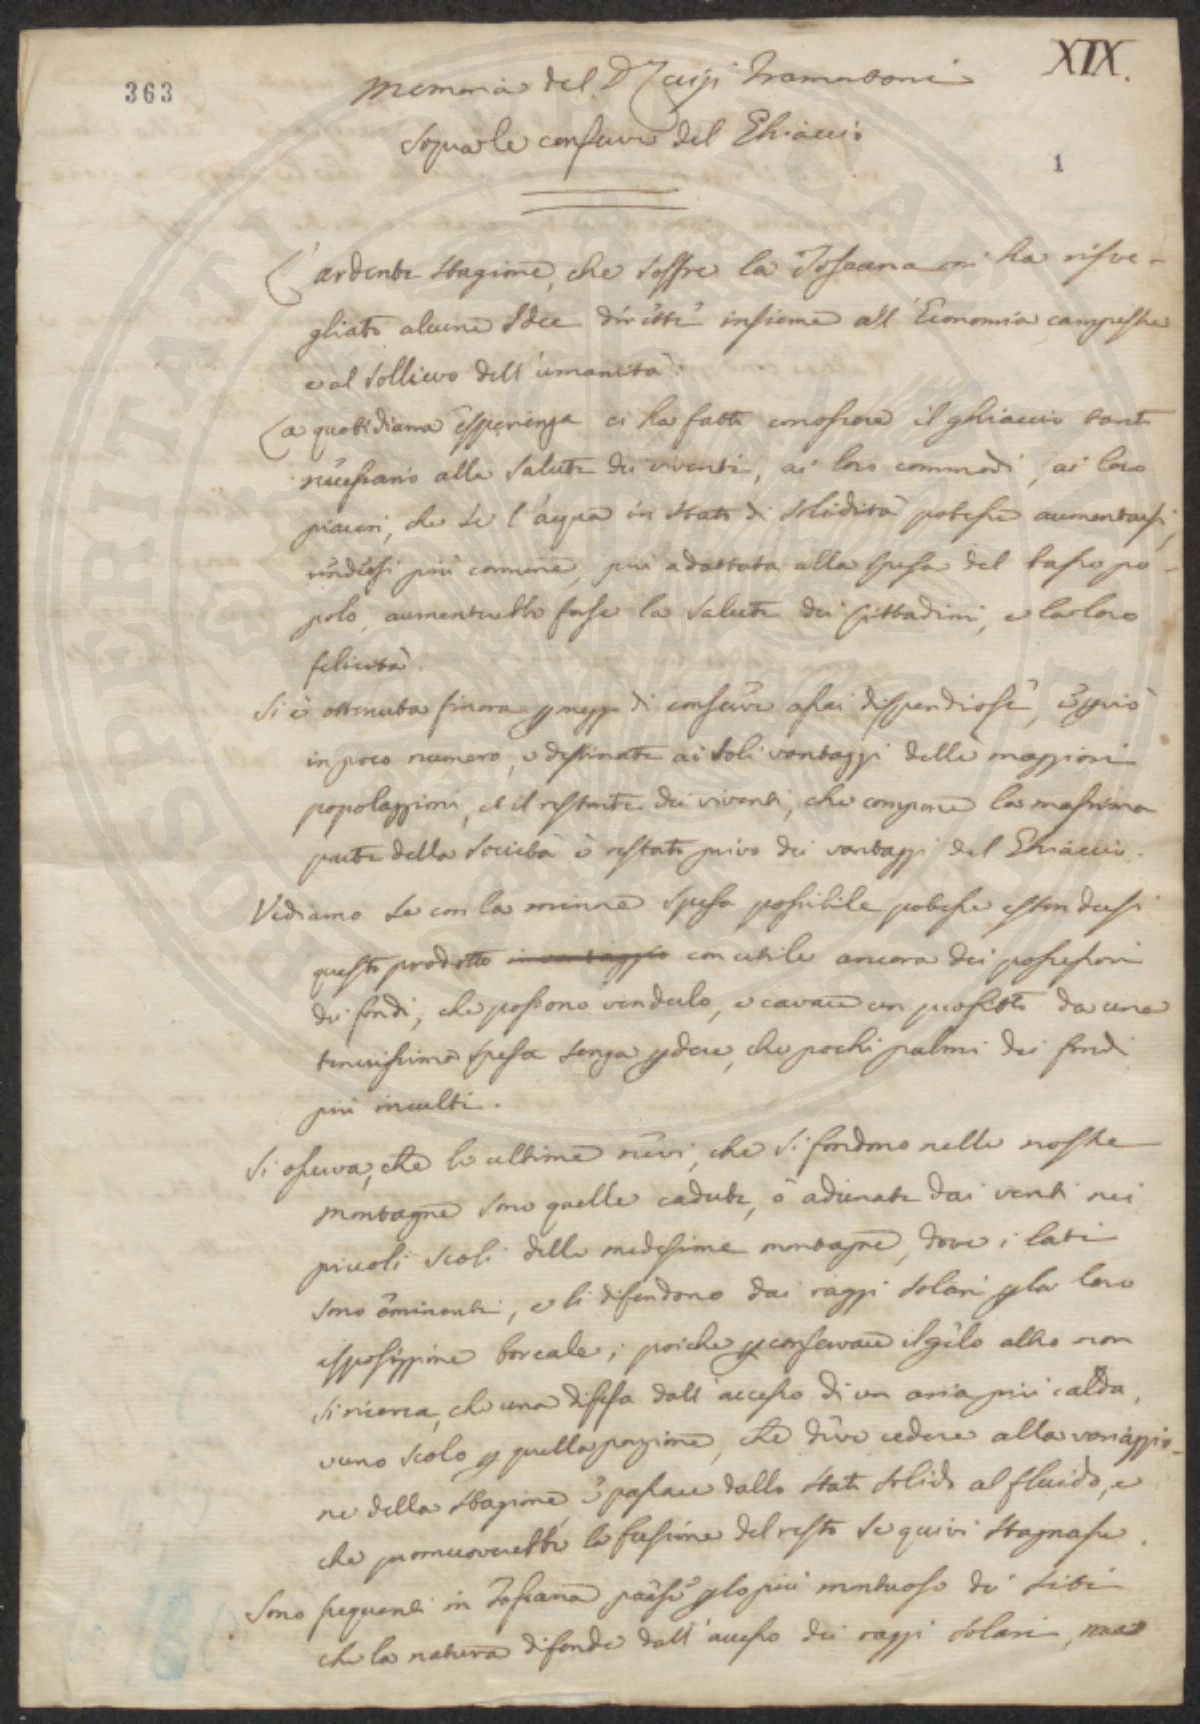 XIX.
363
Memoria del Dr Luigi Tramontani
Sopra le conserve del Ghiaccio
1
L'ardente stagione, che soffre la Toscana mi ha risve-
gliato alcune Idee dirette insieme all'Economia campestre
e al sollievo dell'umanità.
La quotidiana esperienza ci ha fatto conoscere il ghiaccio tanto
necessario alla salute dei viventi, ai loro commodi, ai loro
piaceri, che se l'acqua in stato di solidità potesse aumentarsi,
rendersi più comune, più adattata alla spesa del basso po-
polo, aumenterebbe forse la salute dei Cittadini, e la loro
felicità.
Si è ottenuta finora p mezzo di conserve assai dispendiose, e pciò
in poco numero, e destinate ai soli vantaggi delle maggiori
popolazzioni, ed il restante dei viventi, che compone la massima
parte della società è restato privo dei vantaggi del Ghiaccio.
Vediamo se con la minore spesa possibile potesse estendersi
questo prodotto in vantaggio con utile ancora dei possessori
dei fondi, che possono venderlo, e cavare un profitto da una
tenuissima spesa senza pdere, che pochi palmi dei fondi
più inculti.
Si osserva, che le ultime nevi, che si fondono nelle nostre
montagne sono quelle cadute, o adunate dai venti nei
piccoli scoli delle medesime montagne, dove i lati
sono eminenti, e li difendono dai raggi solari p la loro
esposizzione boreale; poiche p conservare il gelo altro non
si ricerca, che una difesa dall'accesso di un aria più calda,
e uno scolo p quella porzione, che deve cedere alla variazzio-
ne della stagione e passare dallo stato solido al fluido, e
che promuoverebbe la fusione del resto se quivi stagnasse.
Sono frequenti in Toscana paese p lo più montuoso dei siti
che la natura difende dall'accesso dei raggi solari, ma